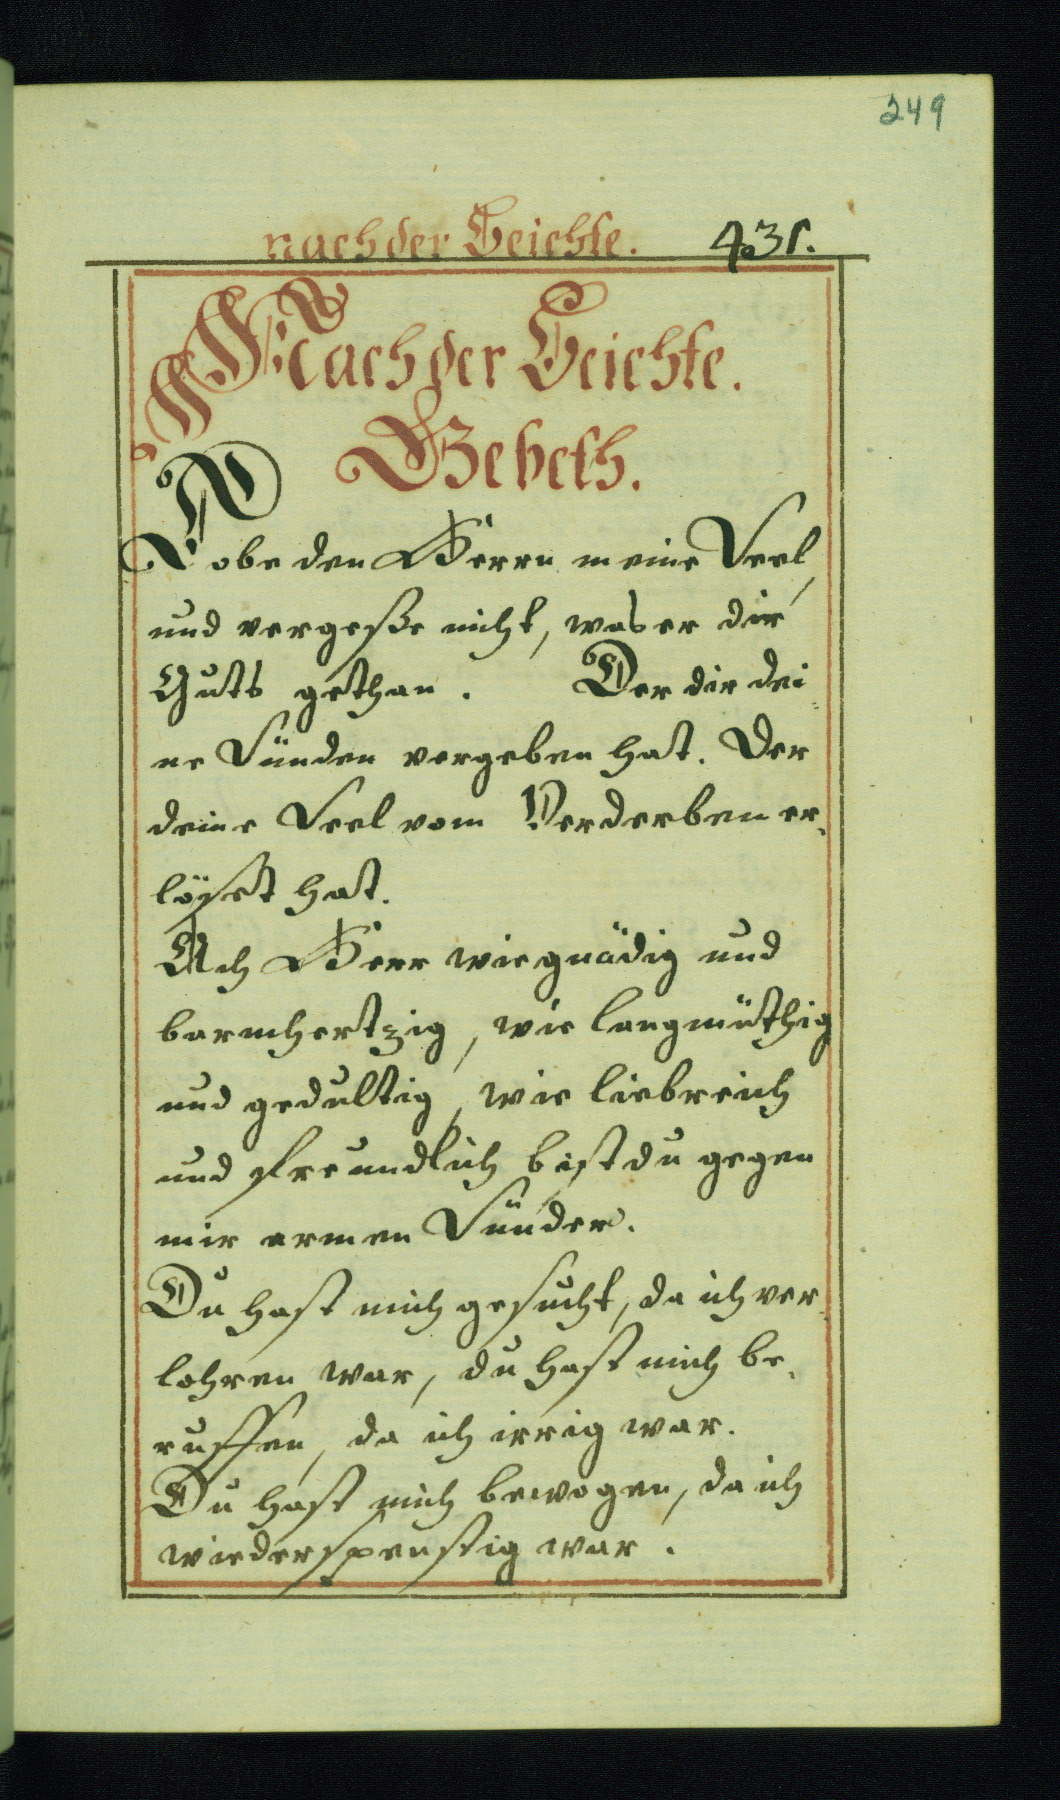 249
nach der Beichte. 431.
Nach der Beichte.
Gebeth.
Lobe den Herrn meine Seel,
und vergeße nicht, was er dir
Guts gethan. Der dir dei-
ne Sünden vergeben hat. Der
deine Seel vom Verderben er-
löset hat.
Ach Herr wie gnädig und
barmhertzig, wie langmüthig
und gedultig, wie liebreich
und freundlich bist du gegen
mir armen Sünder.
Du hast mich gesucht, da ich ver-
lohren war, du hast mich be-
ruffen, da ich irrig war.
Du hast mich bewogen, da ich
wiederspenstig war.